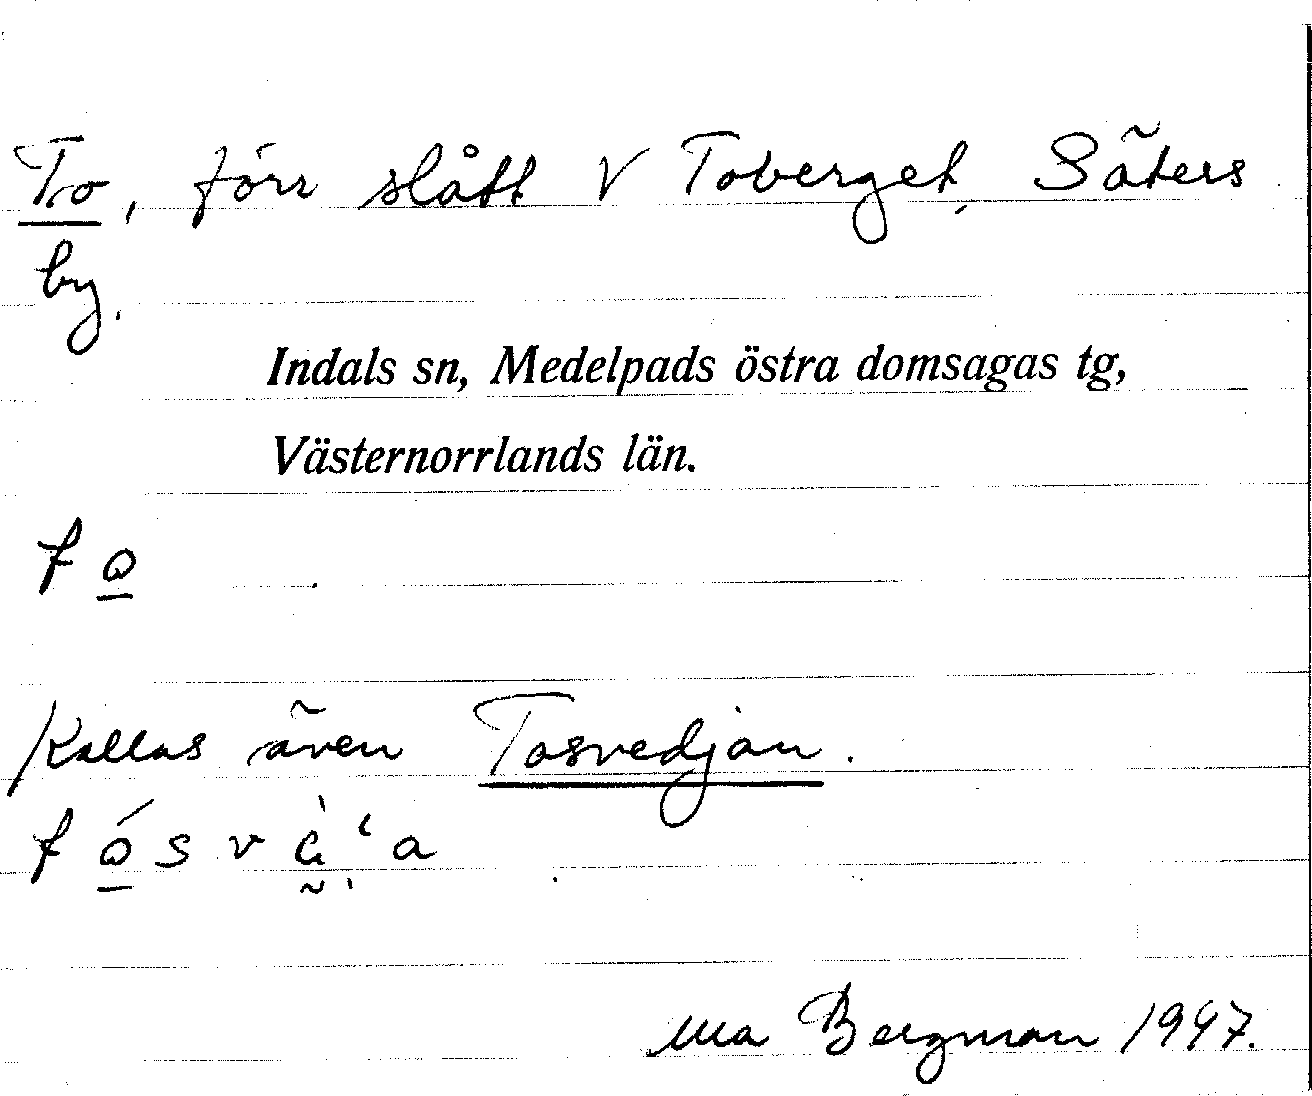 To, förr slått V Toberget, Säters
by.
Indals sn, Medelpads östra domsagas tg,
Västernorrlands län.
Kallas även Tosvedjan.
Bergman 1947.